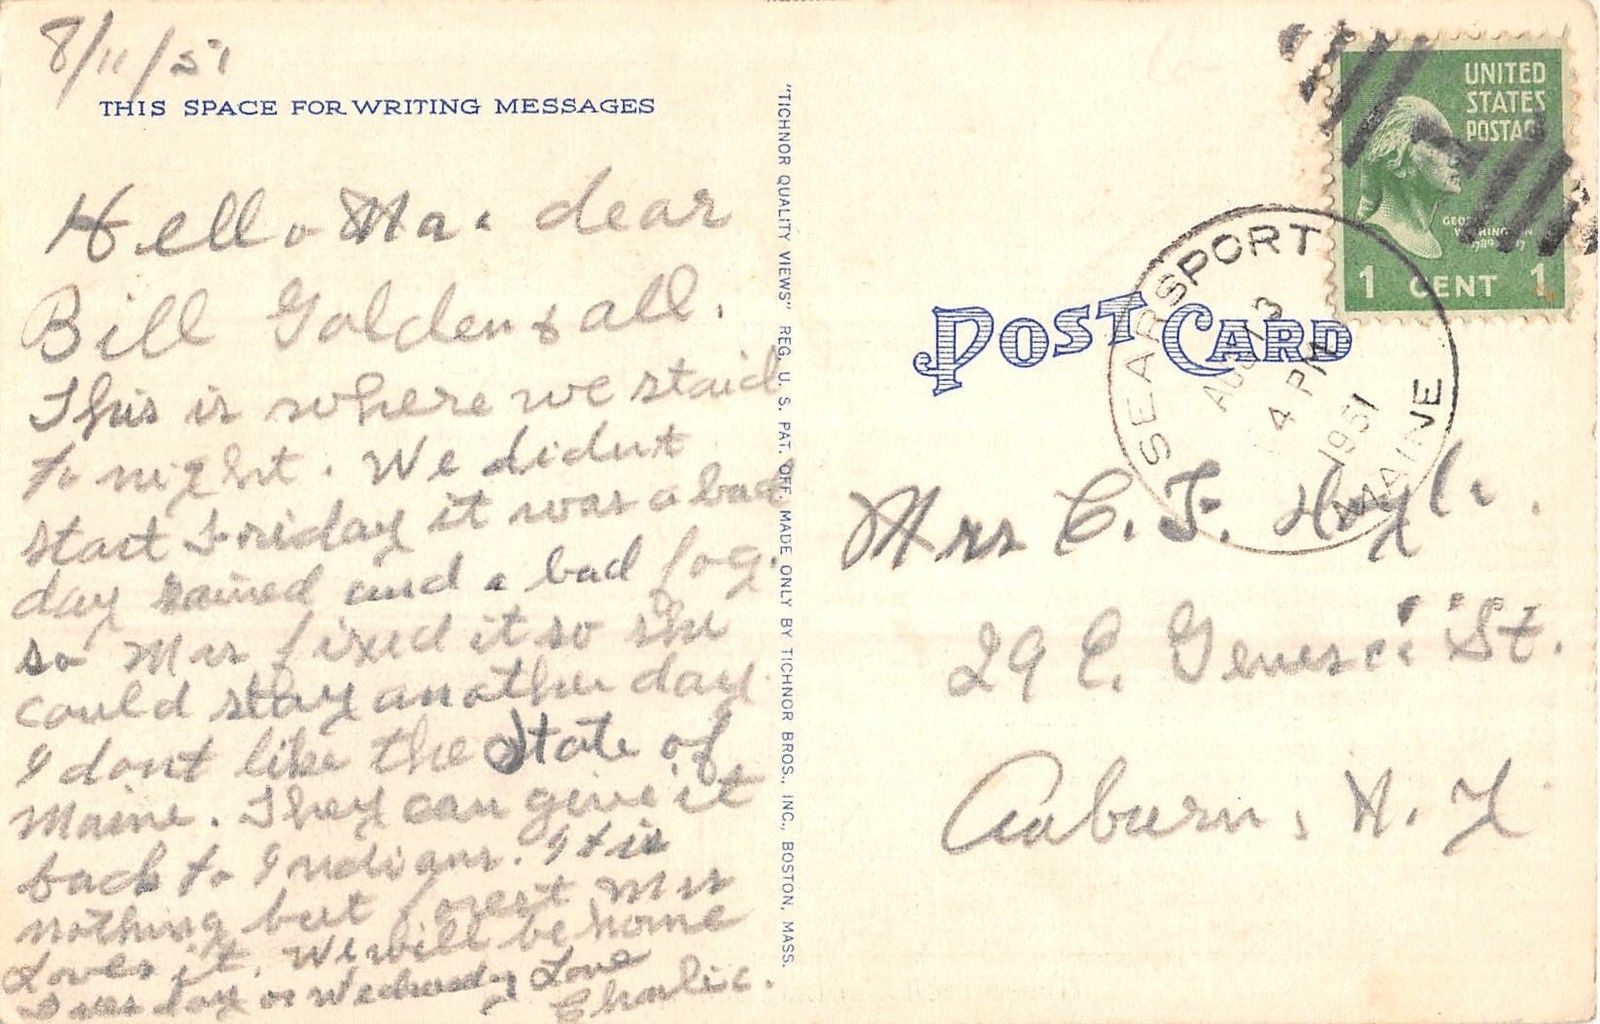 8/11/51
THIS SPACE FOR WRITING MESSAGES
Hello Ma. dear
Bill Golden & all.
This is where we staid
to night. We didnt
start Friday it was a bad
day rained and a bad fog.
so Mrs fixed it so she
could stay another day.
I dont like the State of
Maine. They can give it
back to Indians. It is
nothing but forest Mrs
Loves it. We will be home
Tues day or Wednesday Love
Charlie.
"TICHNOR QUALITY VIEWS" REG. U. S. PAT. OFF. MADE ONLY BY TICHNOR BROS., INC., BOSTON, MASS.
UNITED
STATES
POSTAGE
GEORGE
WASHINGTON
1 CENT 1
POST CARD
SEARSPORT
AUG 13
4 PM
1951
MAINE
Mrs C. F.
29 E. Genesee St.
Auburn, N. Y.